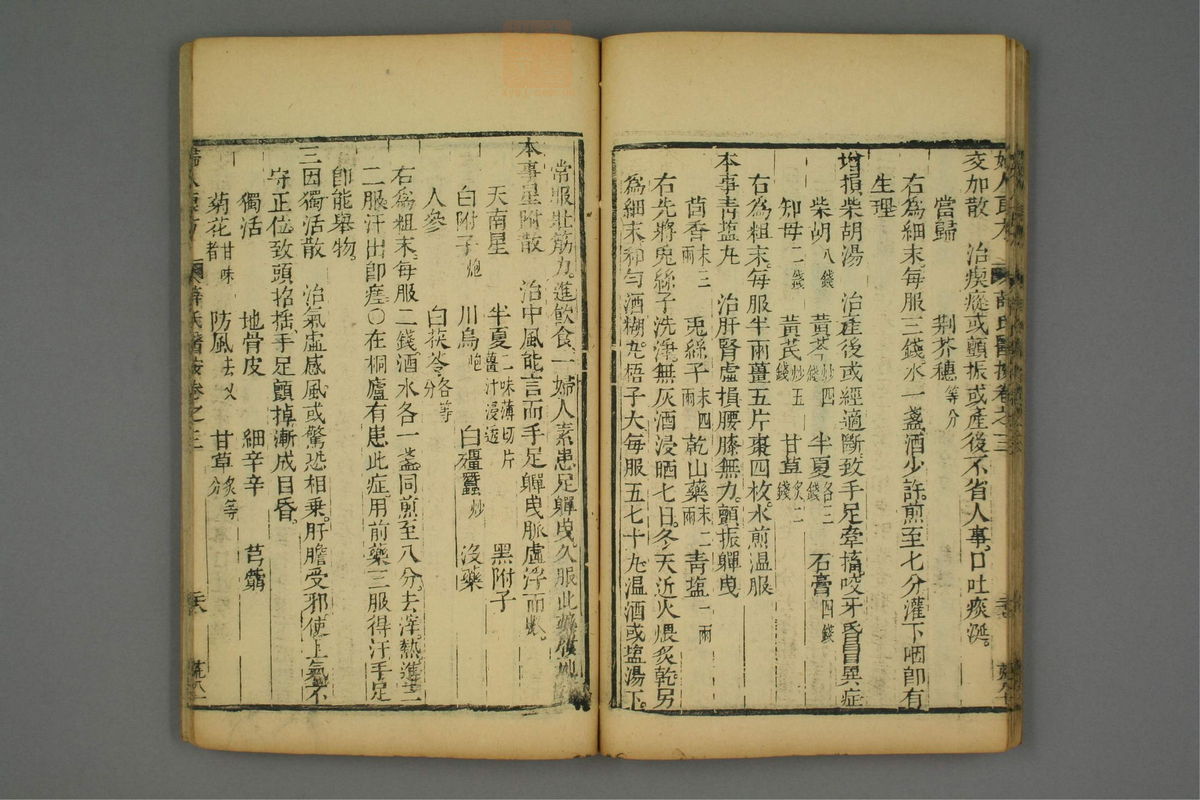 交加散 治瘈瘲或顫振或產後不省人事口吐痰涎。
當歸 荆芥穗等分
右為細末每服三錢水一盞酒少許煎至七分灌下咽即有
生理
增損柴胡湯 治產後或經適斷致手足牽搐咬牙昏冒異症
柴胡八錢 黃芩炒四錢 半夏各三錢 石膏四錢
知母二錢 黃芪炒五錢 甘草炙二錢
右為粗末每服半兩薑五片棗四枚水煎溫服
本事青塩丸 治肝腎虛損腰膝無力顫振軃曳
茴香末三兩 兎絲子末四兩 乾山藥末二兩 青塩一兩
右先將兎絲子洗淨無灰酒浸晒七日冬天近火煨炙乾另
為細末和勻酒糊丸梧子大每服五七十丸温酒或塩湯下。
常服壯筋力進飲食一婦人素患足軃曳久服此
本事星附散 治中風能言而手足軃曳脈虛浮而
天南星 半夏二味薄切片薑汁浸透 黑附子
白附子炮 川烏炮 白殭蠶炒 沒藥
人參 白茯苓各等分
右為粗末每服二錢酒水各一盞同煎至八分去滓熱進二
二服汗出即瘥○在桐廬有患此症用前藥三服得汗手足
即能舉物。
三因獨活散 治氣虛感風或驚恐相乘肝膽受邪使上氣不
守正位致頭招搖手足顫掉漸成目昏。
獨活 地骨皮 細辛辛 芎藭
菊花甘味者 防風去乂 甘草炙等分
婦人良方 薛氏醫按卷之三